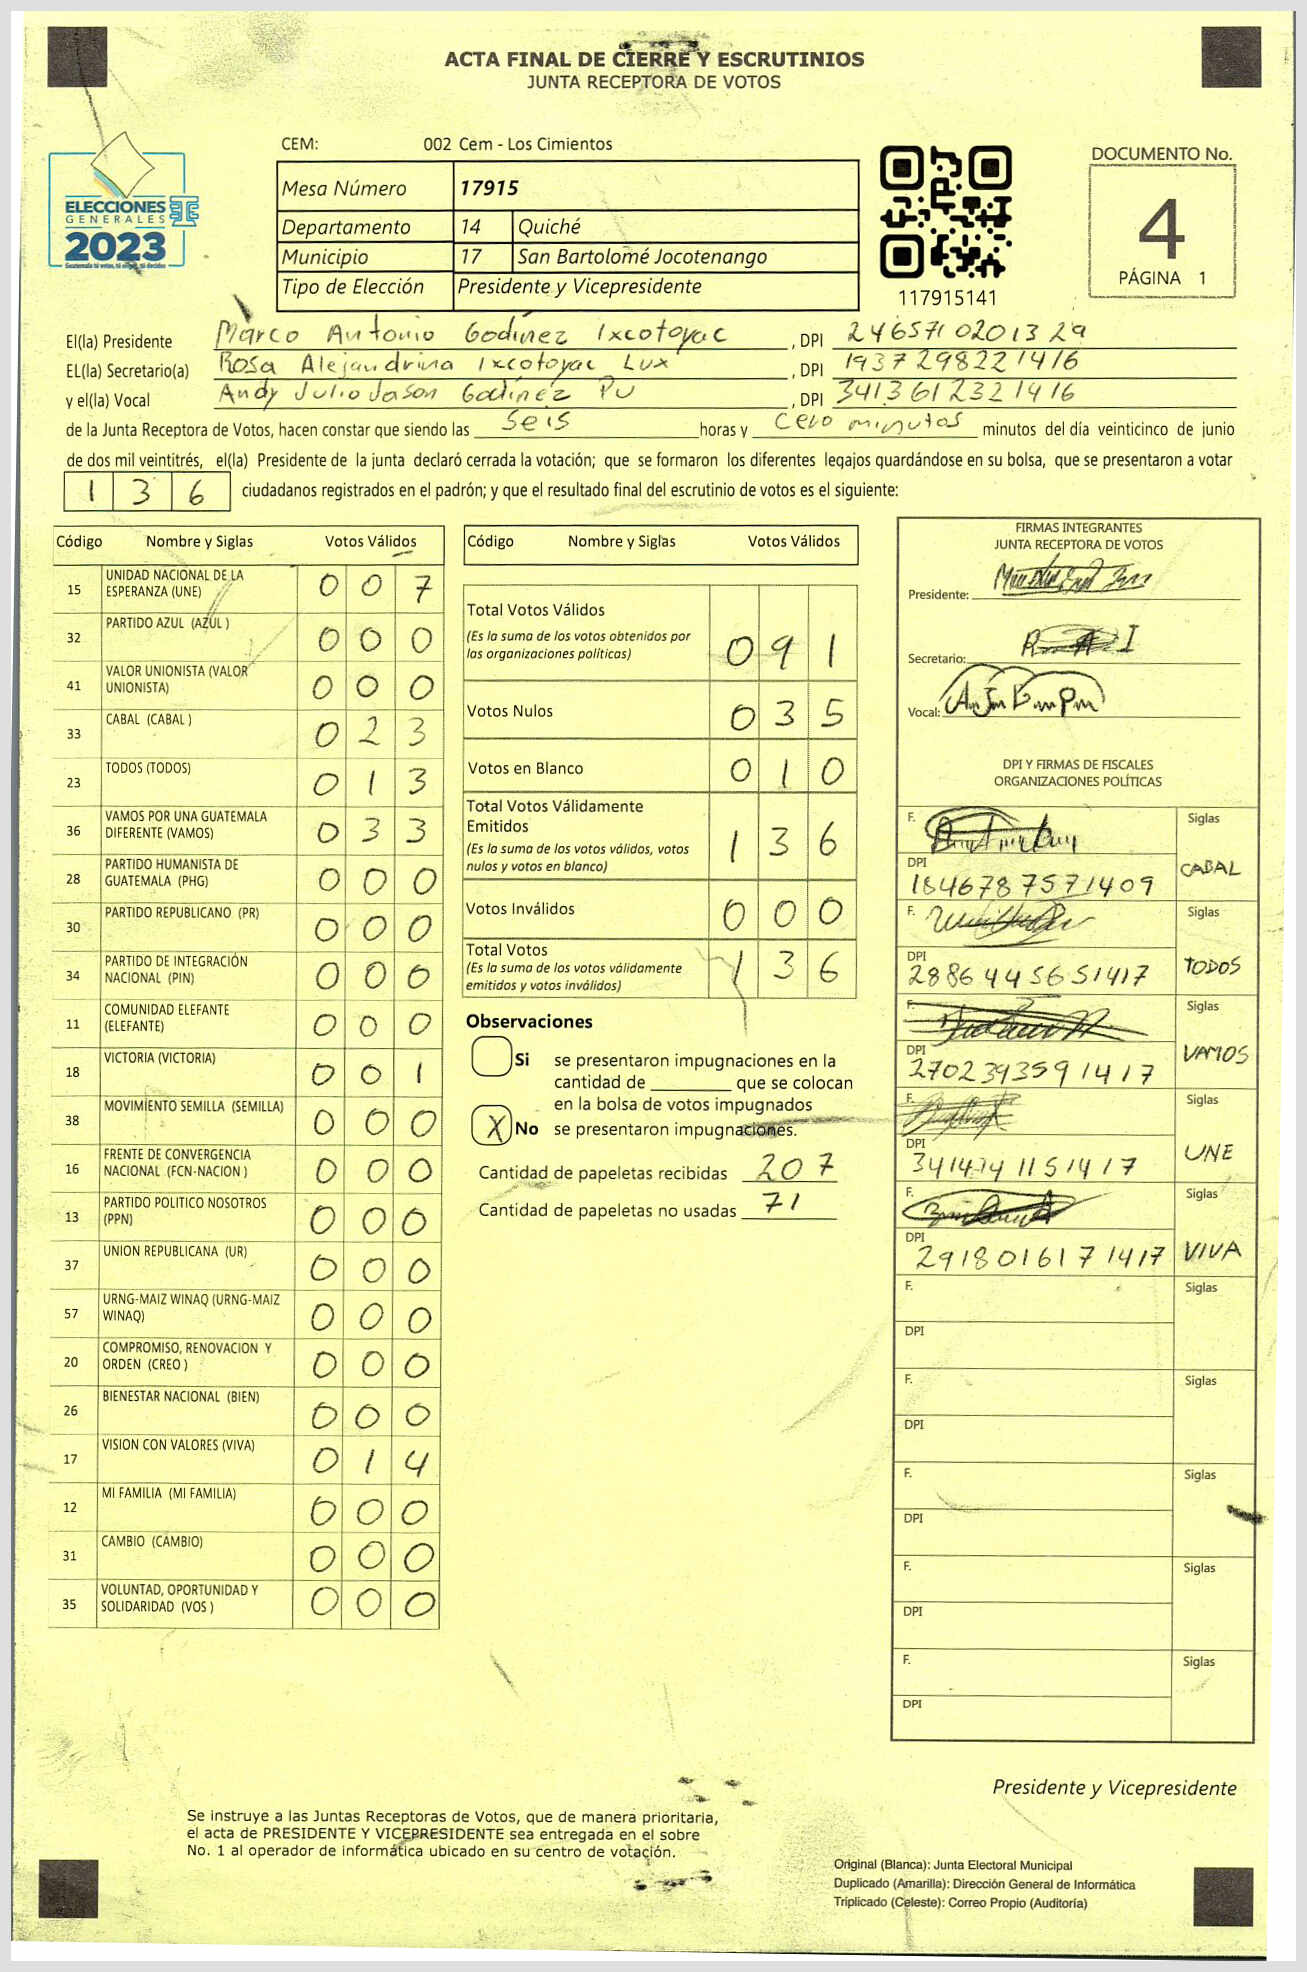 ACTA FINAL DE CIERRE Y ESCRUTINIOS
JUNTA RECEPTORA DE VOTOS
ELECCIONES
GENERALES
2023
CEM: 002 Cem - Los Cimientos
Mesa Número 17915
Departamento 14 Quiché
Municipio 17 San Bartolomé Jocotenango
Tipo de Elección Presidente y Vicepresidente
117915141
DOCUMENTO No.
4
PÁGINA 1
El(la) Presidente Marco Antonio Godinez Ixcotoyac, DPI 2465710201329
EL(la) Secretario(a) Rosa Alejandrina Ixcotoyac Lux, DPI 1937298221416
y el(la) Vocal Andy Julio Jason Godinez Pu, DPI 3413612321416
de la Junta Receptora de Votos, hacen constar que siendo las seis horas y cero minutos minutos del día veinticinco de junio
de dos mil veintitrés, el(la) Presidente de la junta declaró cerrada la votación; que se formaron los diferentes legajos guardándose en su bolsa, que se presentaron a votar
136 ciudadanos registrados en el padrón; y que el resultado final del escrutinio de votos es el siguiente:
Código Nombre y Siglas Votos Válidos
15 UNIDAD NACIONAL DE LA ESPERANZA (UNE) 0 0 7
32 PARTIDO AZUL (AZUL ) 0 0 0
41 VALOR UNIONISTA (VALOR UNIONISTA) 0 0 0
33 CABAL (CABAL ) 0 2 3
23 TODOS (TODOS) 0 1 3
36 VAMOS POR UNA GUATEMALA DIFERENTE (VAMOS) 0 3 3
28 PARTIDO HUMANISTA DE GUATEMALA (PHG) 0 0 0
30 PARTIDO REPUBLICANO (PR) 0 0 0
34 PARTIDO DE INTEGRACIÓN NACIONAL (PIN) 0 0 0
11 COMUNIDAD ELEFANTE (ELEFANTE) 0 0 0
18 VICTORIA (VICTORIA) 0 0 1
38 MOVIMIENTO SEMILLA (SEMILLA) 0 0 0
16 FRENTE DE CONVERGENCIA NACIONAL (FCN-NACION ) 0 0 0
13 PARTIDO POLITICO NOSOTROS (PPN) 0 0 0
37 UNION REPUBLICANA (UR) 0 0 0
57 URNG-MAIZ WINAQ (URNG-MAIZ WINAQ) 0 0 0
20 COMPROMISO, RENOVACION Y ORDEN (CREO ) 0 0 0
26 BIENESTAR NACIONAL (BIEN) 0 0 0
17 VISION CON VALORES (VIVA) 0 1 4
12 MI FAMILIA (MI FAMILIA) 0 0 0
31 CAMBIO (CAMBIO) 0 0 0
35 VOLUNTAD, OPORTUNIDAD Y SOLIDARIDAD (VOS ) 0 0 0
Código Nombre y Siglas Votos Válidos
Total Votos Válidos 0 9 1
(Es la suma de los votos obtenidos por
las organizaciones políticas)
Votos Nulos 0 3 5
Votos en Blanco 0 1 0
Total Votos Válidamente
Emitidos 1 3 6
(Es la suma de los votos válidos, votos
nulos y votos en blanco)
Votos Inválidos 0 0 0
Total Votos 1 3 6
(Es la suma de los votos válidamente
emitidos y votos inválidos)
Observaciones
Si se presentaron impugnaciones en la
cantidad de ________ que se colocan
en la bolsa de votos impugnados
X No se presentaron impugnaciones.
Cantidad de papeletas recibidas 207
Cantidad de papeletas no usadas 71
FIRMAS INTEGRANTES
JUNTA RECEPTORA DE VOTOS
Presidente:
Secretario:
Vocal:
DPI Y FIRMAS DE FISCALES
ORGANIZACIONES POLÍTICAS
F. Siglas
DPI CABAL
1846787571409
F. Siglas
DPI TODOS
2886445651417
F. Siglas
DPI VAMOS
2702393591417
F. Siglas
DPI UNE
F. Siglas
DPI VIVA
2918016171417
F. Siglas
DPI
F. Siglas
DPI
F. Siglas
DPI
F. Siglas
DPI
F. Siglas
DPI
Presidente y Vicepresidente
Se instruye a las Juntas Receptoras de Votos, que de manera prioritaria,
el acta de PRESIDENTE Y VICEPRESIDENTE sea entregada en el sobre
No. 1 al operador de informática ubicado en su centro de votación.
Original (Blanca): Junta Electoral Municipal
Duplicado (Amarilla): Dirección General de Informática
Triplicado (Celeste): Correo Propio (Auditoría)